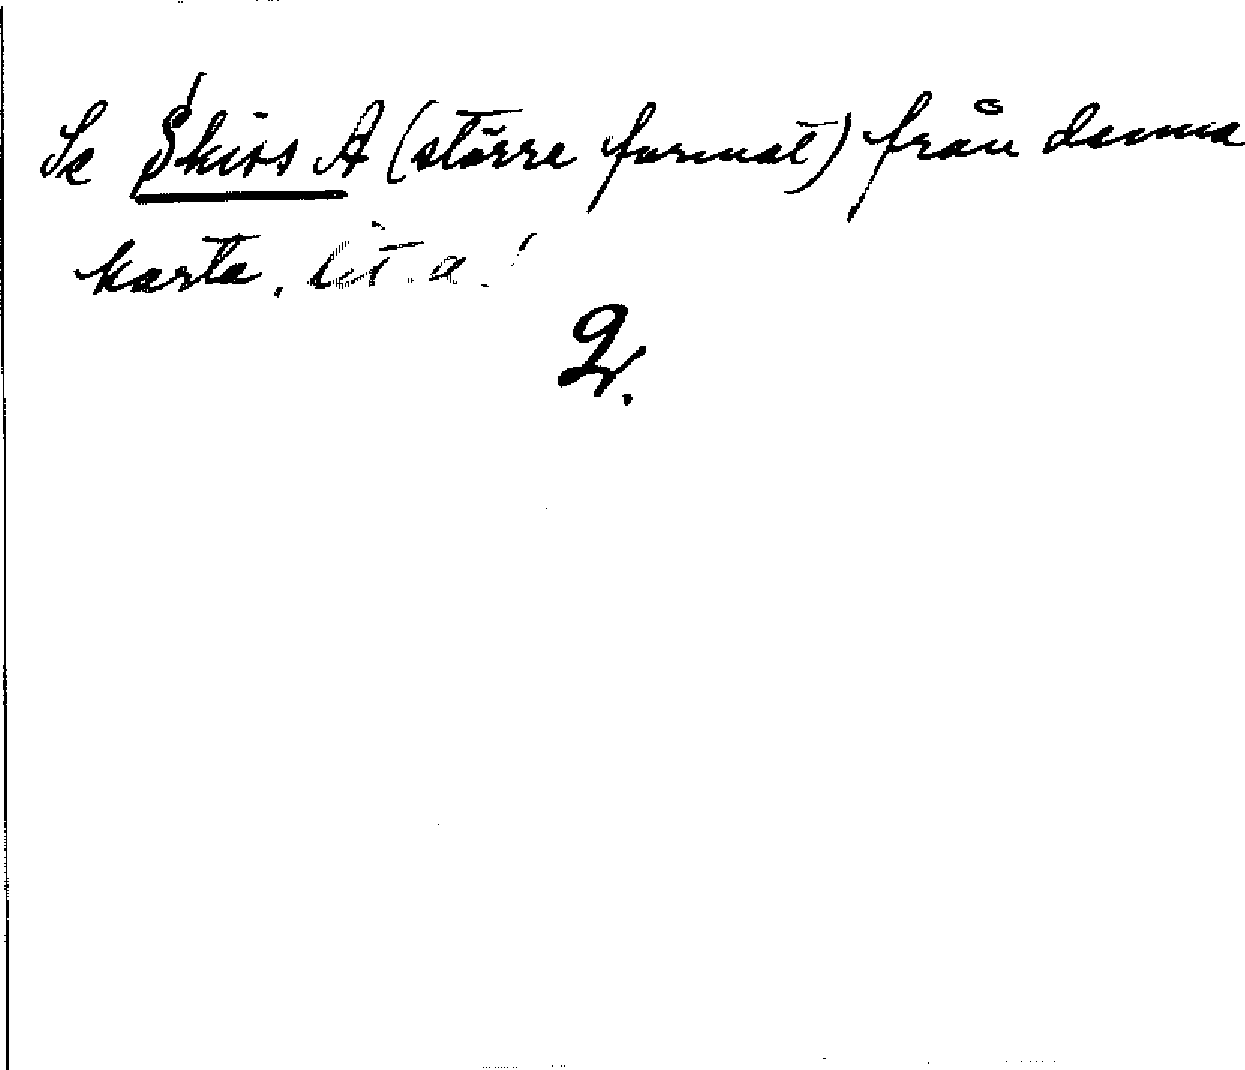 Se Skiss A (större format) från denna
karta. Lit. a.!